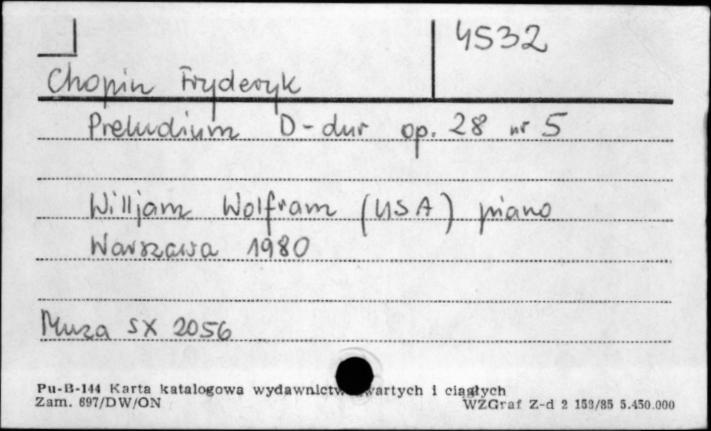 4532
Chopin Fryderyk
Preludium D-dur op. 28 nr 5
Willjam Wolfram (USA) piano
Warszawa 1980
Muza SX 2056
Pu-B-144 Karta katalogowa wydawnictw zwartych i ciągłych
Zam. 697/DW/ON WZGraf Z-d 2 153/85 5.450.000